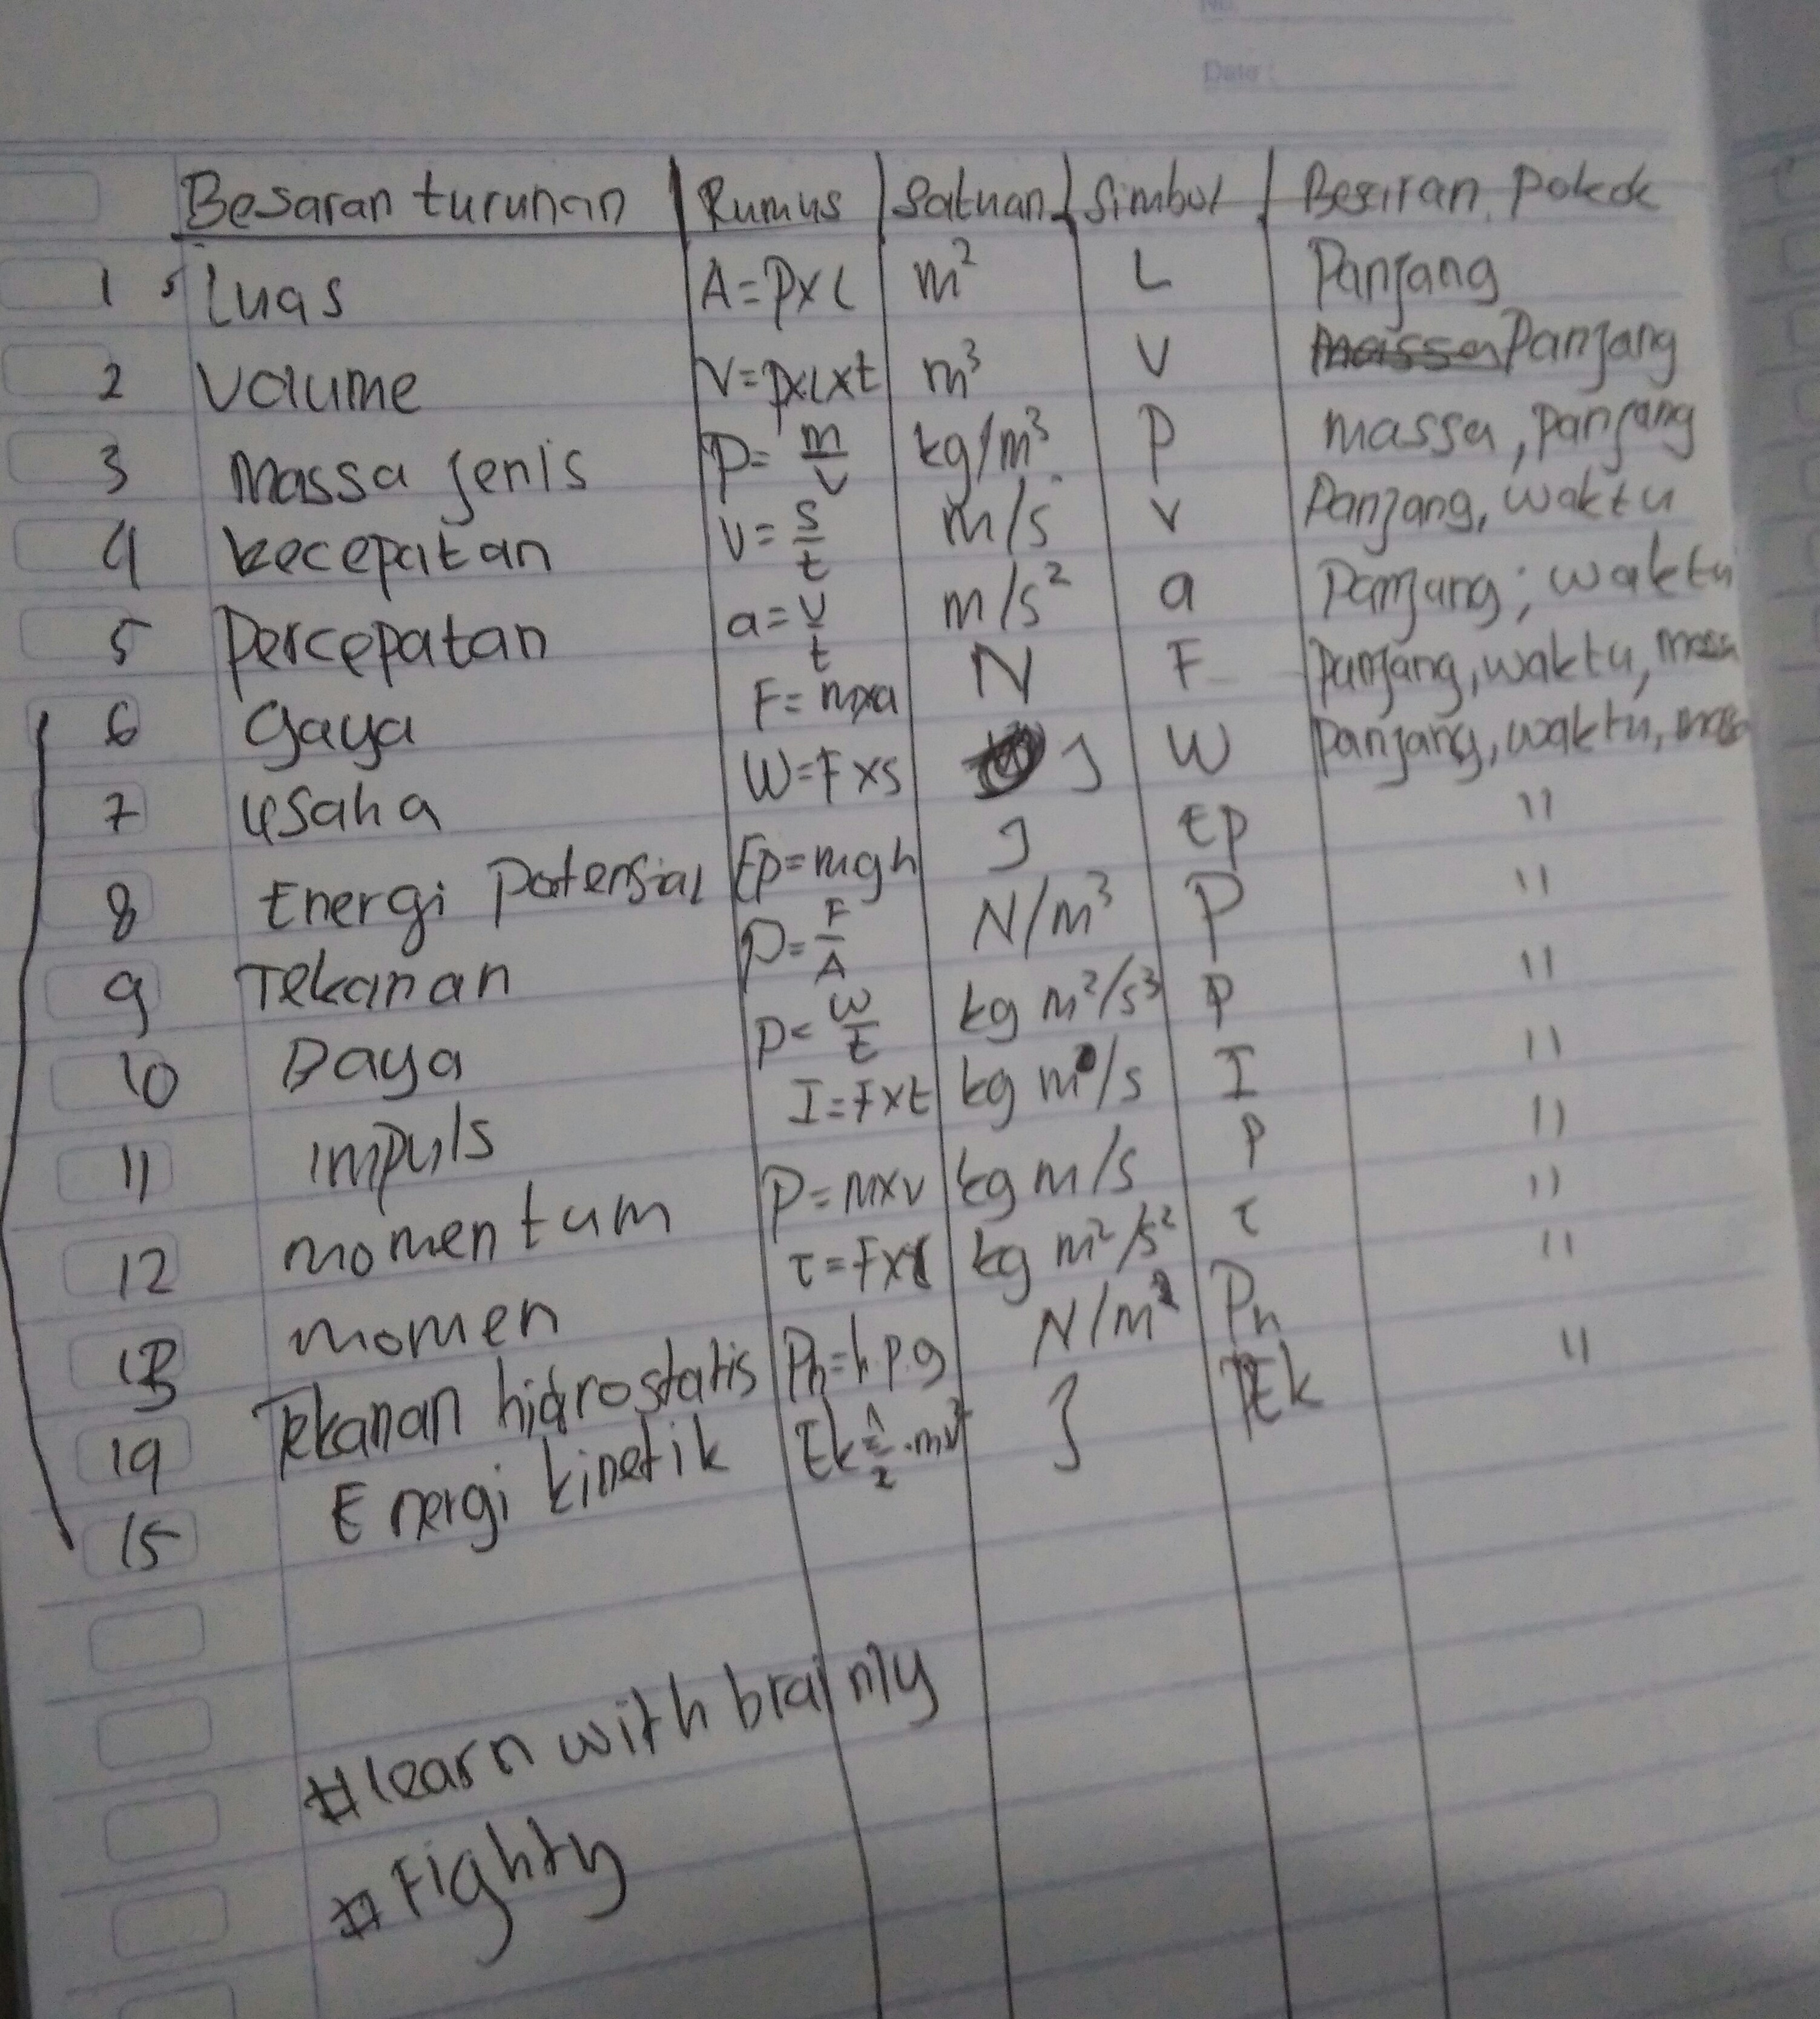 No.
Date :
Besaran turunan | Rumus | Satuan | Simbol | Besaran Pokok
1 Luas A = p x l m² L Panjang
2 Volume V = p x l x t m³ V Panjang
3 Massa jenis P = m/v kg/m³ P massa, panjang
4 kecepatan v = s/t m/s v Panjang, waktu
5 Percepatan a = v/t m/s² a Panjang; waktu
6 Gaya F = m x a N F Panjang, waktu, massa
7 Usaha W = F x s J W Panjang, waktu, massa
8 Energi Potensial Ep = mgh J Ep "
9 Tekanan P = F/A N/m³ P "
10 Daya P = w/t kg m²/s³ P "
11 impuls I = F x t kg m/s I "
12 momentum P = m x v kg m/s P "
13 momen τ = F x kg m²/s² τ "
14 Tekanan hidrostatis Ph = h.p.g N/m² Ph "
15 Energi kinetik Ek = 1/2 . mv² J Ek "
#learn with brainly
#Fighty